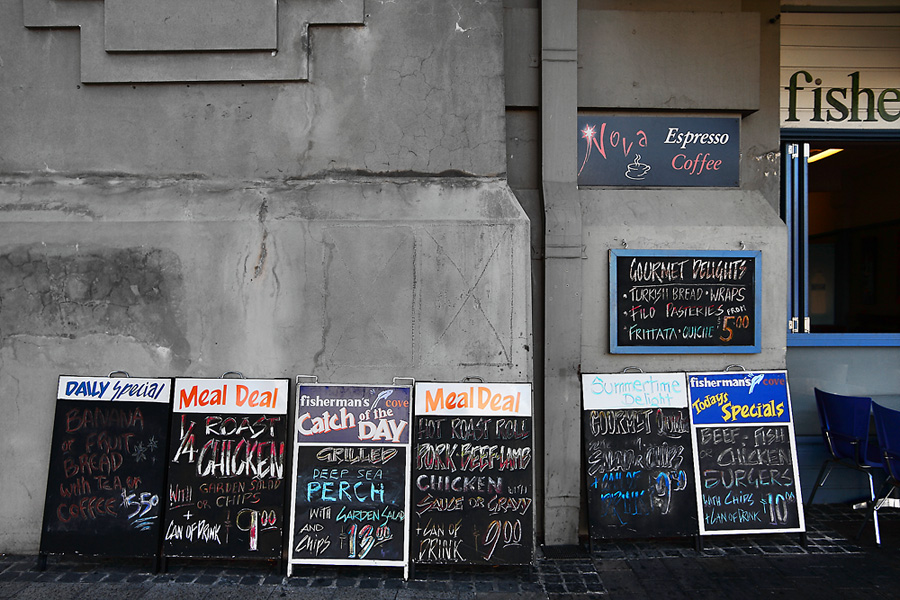 fishe
Nova Espresso
Coffee
GOURMET DELIGHTS
• TURKISH BREAD • WRAPS
• FILO PASTERIES FROM
• FRITTATA • QUICHE 5.00
DAILY Special
BANANA
OR FRUIT
BREAD
WITH TEA OR
COFFEE 5.50
Meal Deal
1/4 ROAST
CHICKEN
WITH GARDEN SALAD
OR CHIPS
+
CAN OF
DRINK 9.00
fisherman's cove
Catch of the
DAY
GRILLED
DEEP SEA
PERCH
WITH GARDEN SALAD
AND
CHIPS 13.00
Meal Deal
HOT ROAST ROLL
PORK BEEF LAMB
CHICKEN WITH
SAUCE OR GRAVY
+ CAN OF
DRINK 9.00
SUMMERTIME
DELIGHT
GOURMET
CHIPS
9.50
fisherman's cove
Todays
Specials
BEEF, FISH
OR CHICKEN
BURGERS
WITH CHIPS
+ CAN OF DRINK 10.00